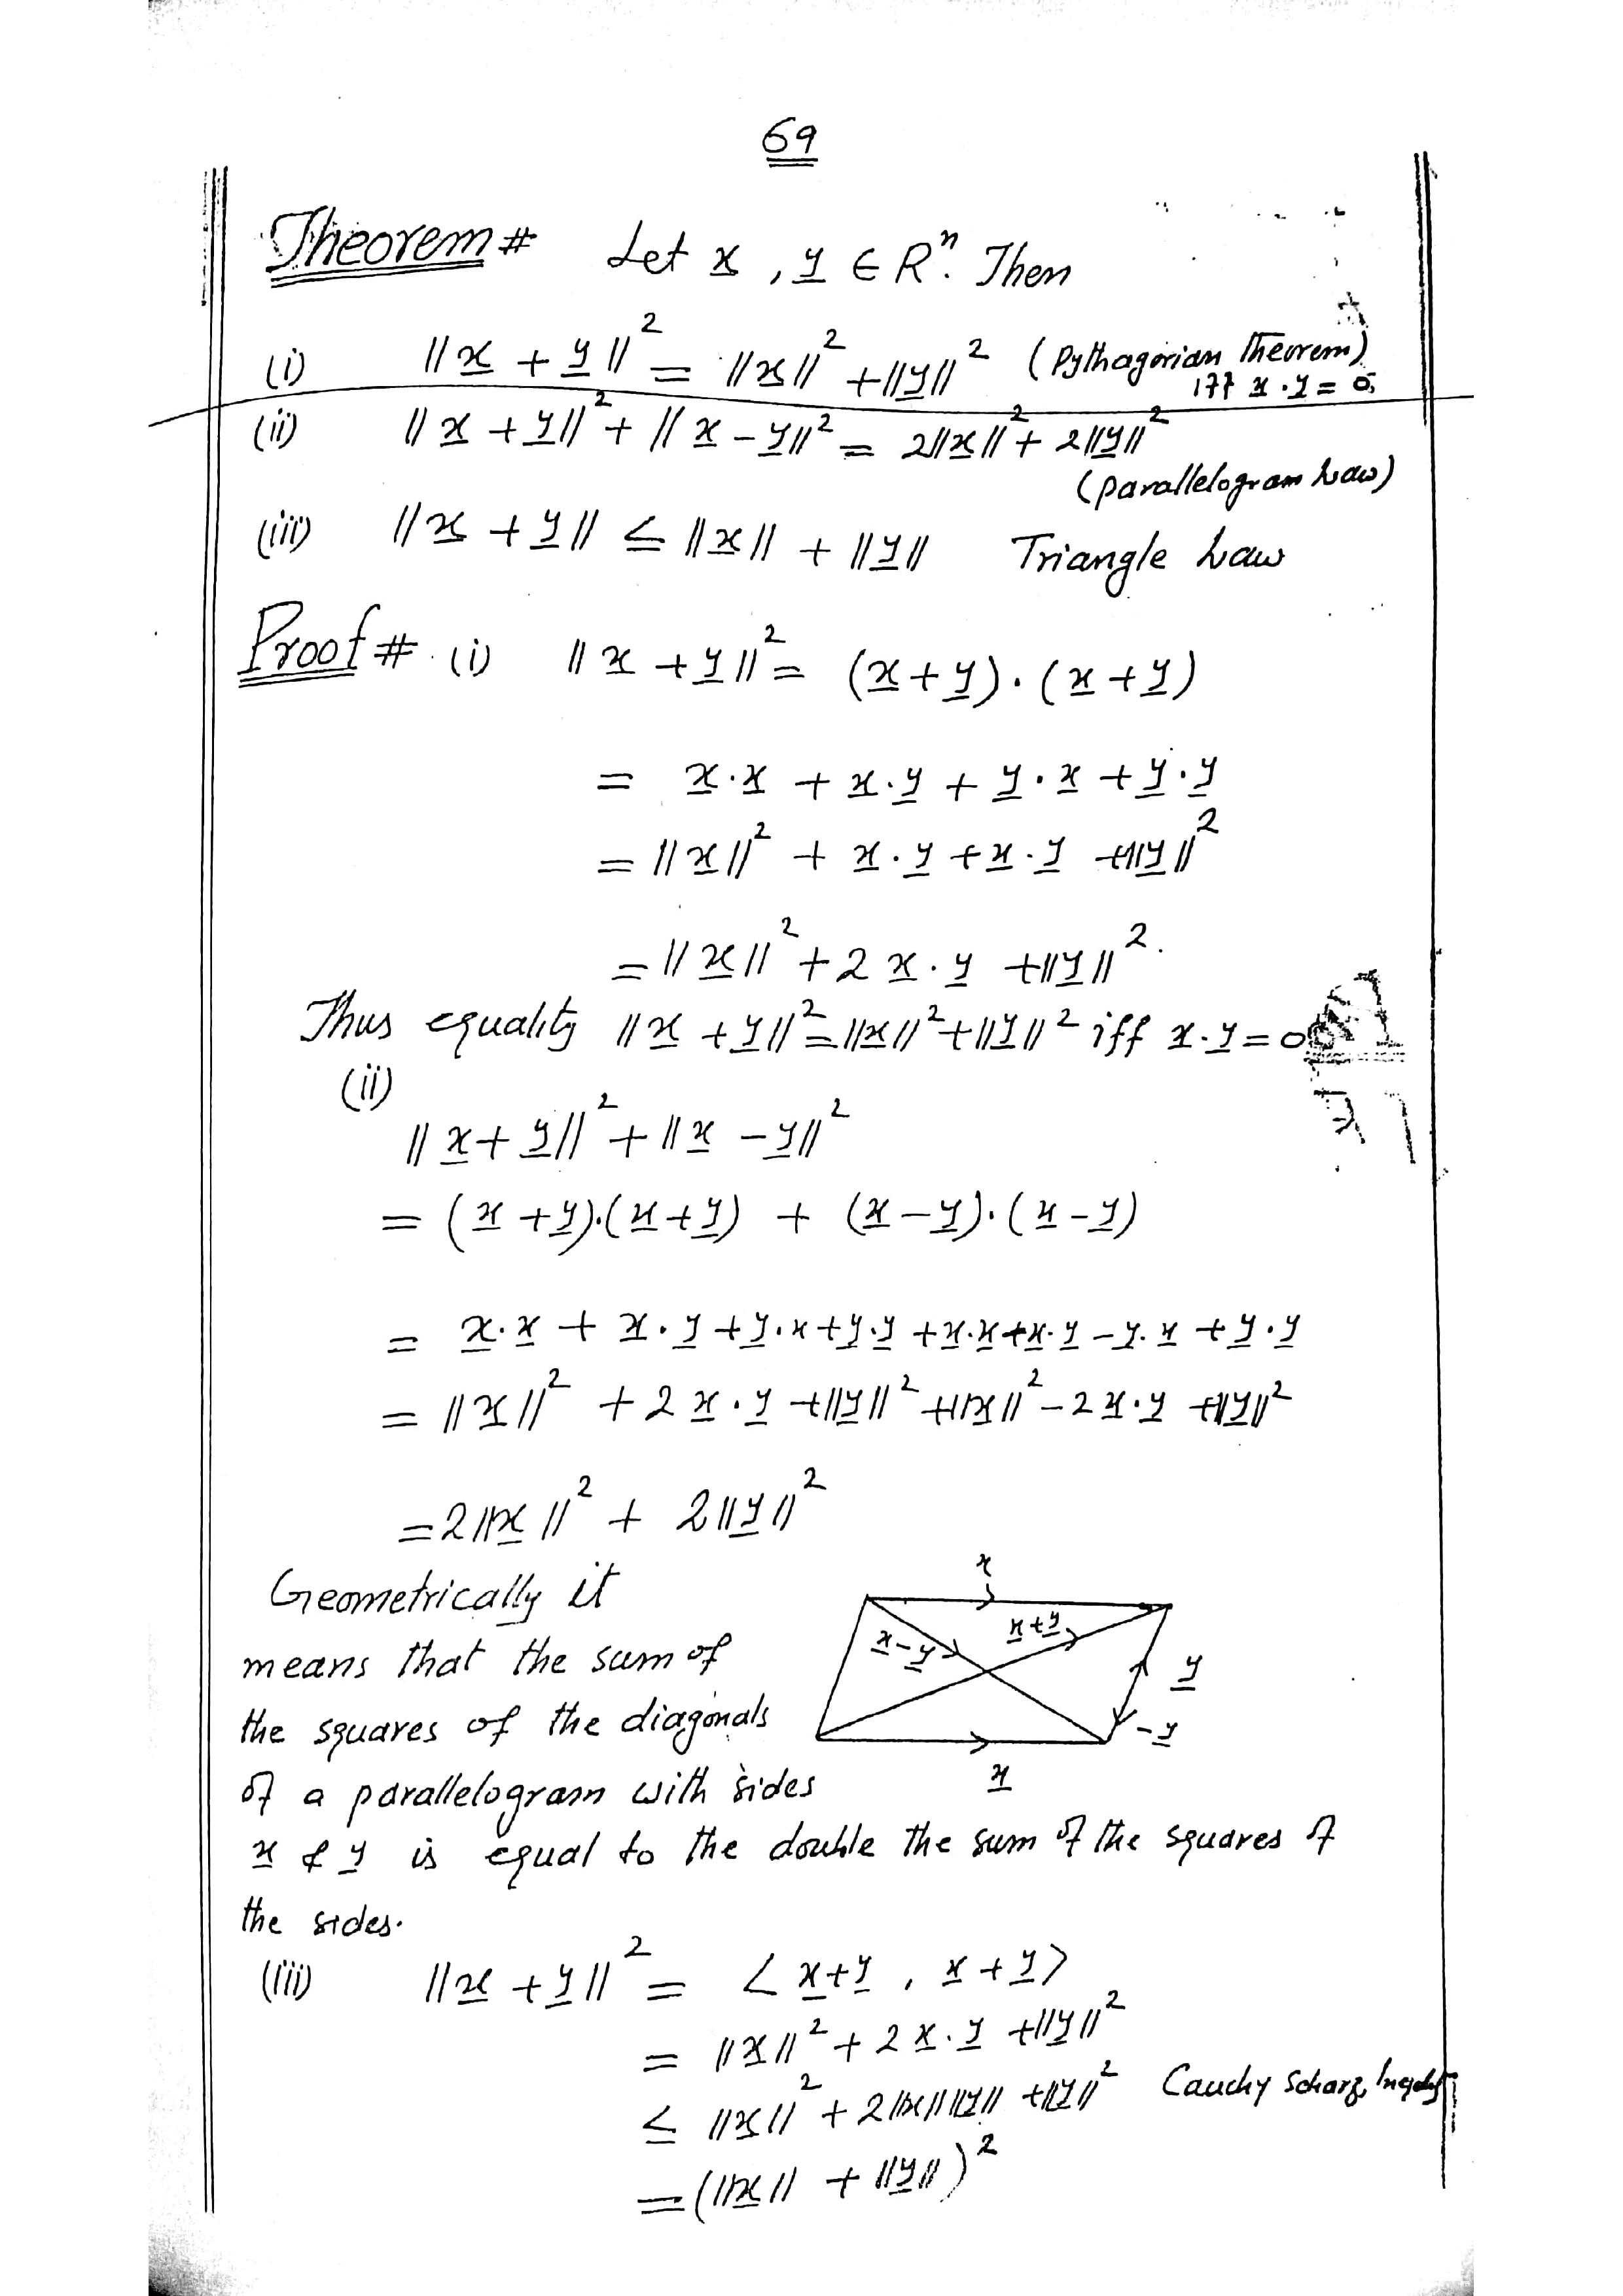 69
Theorem # Let x̲ , y̲ ∈ Rⁿ. Then
(i) ||x̲ + y̲||² = ||x̲||² + ||y̲||² (Pythagorian Theorem)
iff x̲ . y̲ = 0
(ii) ||x̲ + y̲||² + ||x̲ - y̲||² = 2||x̲||² + 2||y̲||²
(parallelogram Law)
(iii) ||x̲ + y̲|| ≤ ||x̲|| + ||y̲|| Triangle Law
Proof # (i) ||x̲ + y̲||² = (x̲ + y̲) . (x̲ + y̲)
= x̲ . x̲ + x̲ . y̲ + y̲ . x̲ + y̲ . y̲
= ||x̲||² + x̲ . y̲ + x̲ . y̲ + ||y̲||²
= ||x̲||² + 2 x̲ . y̲ + ||y̲||².
Thus equality ||x̲ + y̲||² = ||x̲||² + ||y̲||² iff x̲ . y̲ = 0
(ii)
||x̲ + y̲||² + ||x̲ - y̲||²
= (x̲ + y̲).(x̲ + y̲) + (x̲ - y̲).(x̲ - y̲)
= x̲ . x̲ + x̲ . y̲ + y̲ . x̲ + y̲ . y̲ + x̲ . x̲ + x̲ . y̲ - y̲ . x̲ + y̲ . y̲
= ||x̲||² + 2 x̲ . y̲ + ||y̲||² + ||x̲||² - 2 x̲ . y̲ + ||y̲||²
= 2||x̲||² + 2||y̲||²
Geometrically it
means that the sum of
the squares of the diagonals
of a parallelogram with sides
x̲ & y̲ is equal to the double the sum of the squares of
the sides.
x
x̲ - y̲
x̲ + y̲
y̲
-y̲
x̲
(iii) ||x̲ + y̲||² = < x̲ + y̲ , x̲ + y̲ >
= ||x̲||² + 2 x̲ . y̲ + ||y̲||²
≤ ||x̲||² + 2||x̲|| ||y̲|| + ||y̲||² Cauchy Scharz
= (||x̲|| + ||y̲||)²